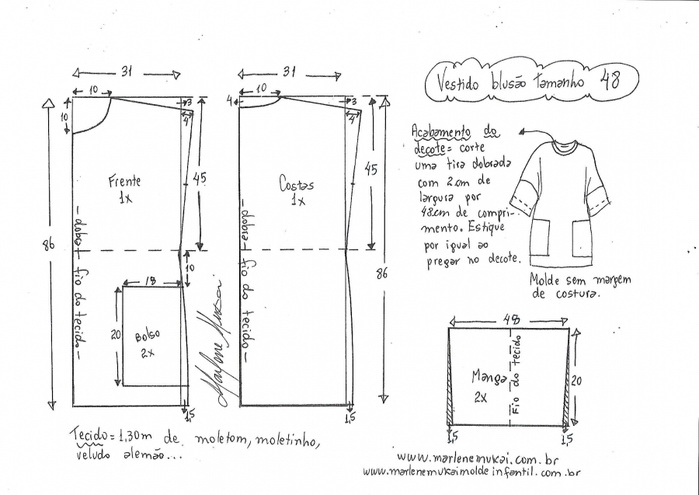 Vestido blusão tamanho 48
31
10
10
3
4
45
86
Frente
1x
-dobra- fio do tecido-
10
18
20
Bolso
2x
1,5
Marlene Mukai
31
10
4
3
4
45
86
Costas
1x
-dobra- fio do tecido-
1,5
Acabamento do
decote= corte
uma tira dobrada
com 2cm de
largura por
48cm de compri-
mento. Estique
por igual ao
pregar no decote.
Molde sem margem
de costura.
48
Manga
2x
Fio do tecido
20
1,5
1,5
Tecido= 1,30m de moletom, moletinho,
veludo alemão...
www.marlenemukai.com.br
www.marlenemukaimoldeinfantil.com.br